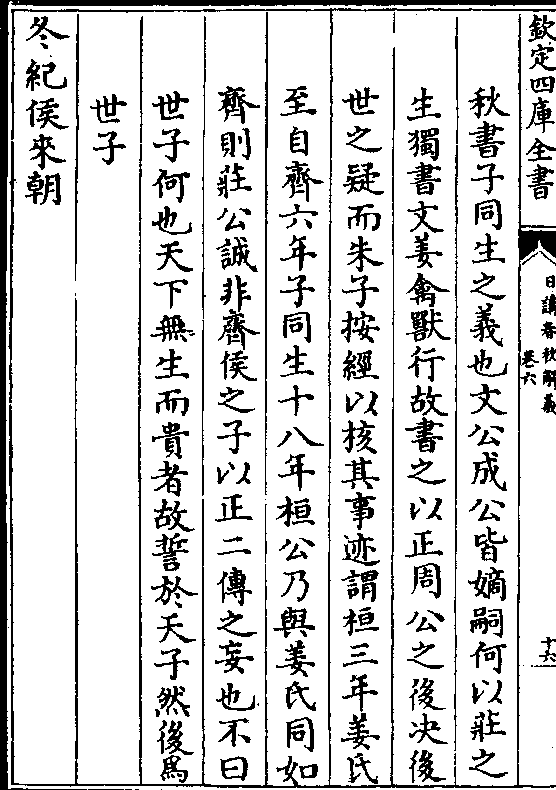 欽定四庫全書
日講春秋解義
卷六
十六
秋書子同生之義也文公成公皆嫡嗣何以莊之
生獨書文姜禽獸行故書之以正周公之後决後
世之疑而朱子按經以核其事迹謂桓三年姜氏
至自齊六年子同生十八年桓公乃與姜氏同如
齊則莊公誠非齊侯之子以正二傳之妄也不曰
世子何也天下無生而貴者故誓於天子然後為
世子
冬紀侯來朝